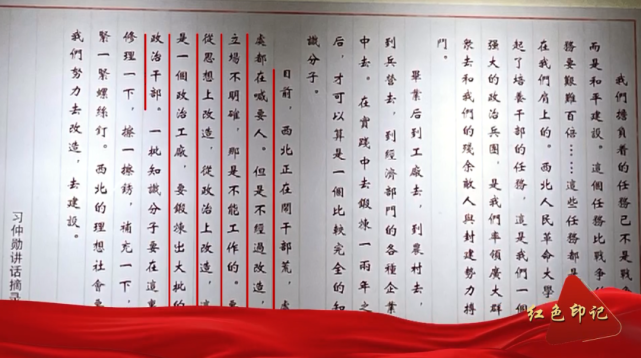 我們擔負着的任務已不是戰爭
而是和平建設。這個任務比戰爭的
務要艱難百倍……這些任務都是
在我們肩上的。西北人民革命大學
起了培養干部的任務，這是我們一個
强大的政治兵團，是我們率領廣大群
衆去和我們的殘余敵人與封建勢力搏
鬥。
畢業后到工廠去，到農村去，
到兵營去，到經濟部門的各種企業
中去。在實踐中去鍛煉一兩年之
后，才可以算是一個比較完全的知
識分子。
目前，西北正在鬧干部荒，處
處都在喊要人。但是不經過改造，
立場不明確，那是不能工作的。要
從思想上改造，從政治上改造，這
是一個政治工廠，要鍛煉出大批的
政治干部。一批知識分子要在這裏
修理一下，擦一擦銹，補充一下，
緊一緊螺絲釘。西北的理想社會要
我們努力去改造，去建設。
习仲勋讲话摘录
红色印记